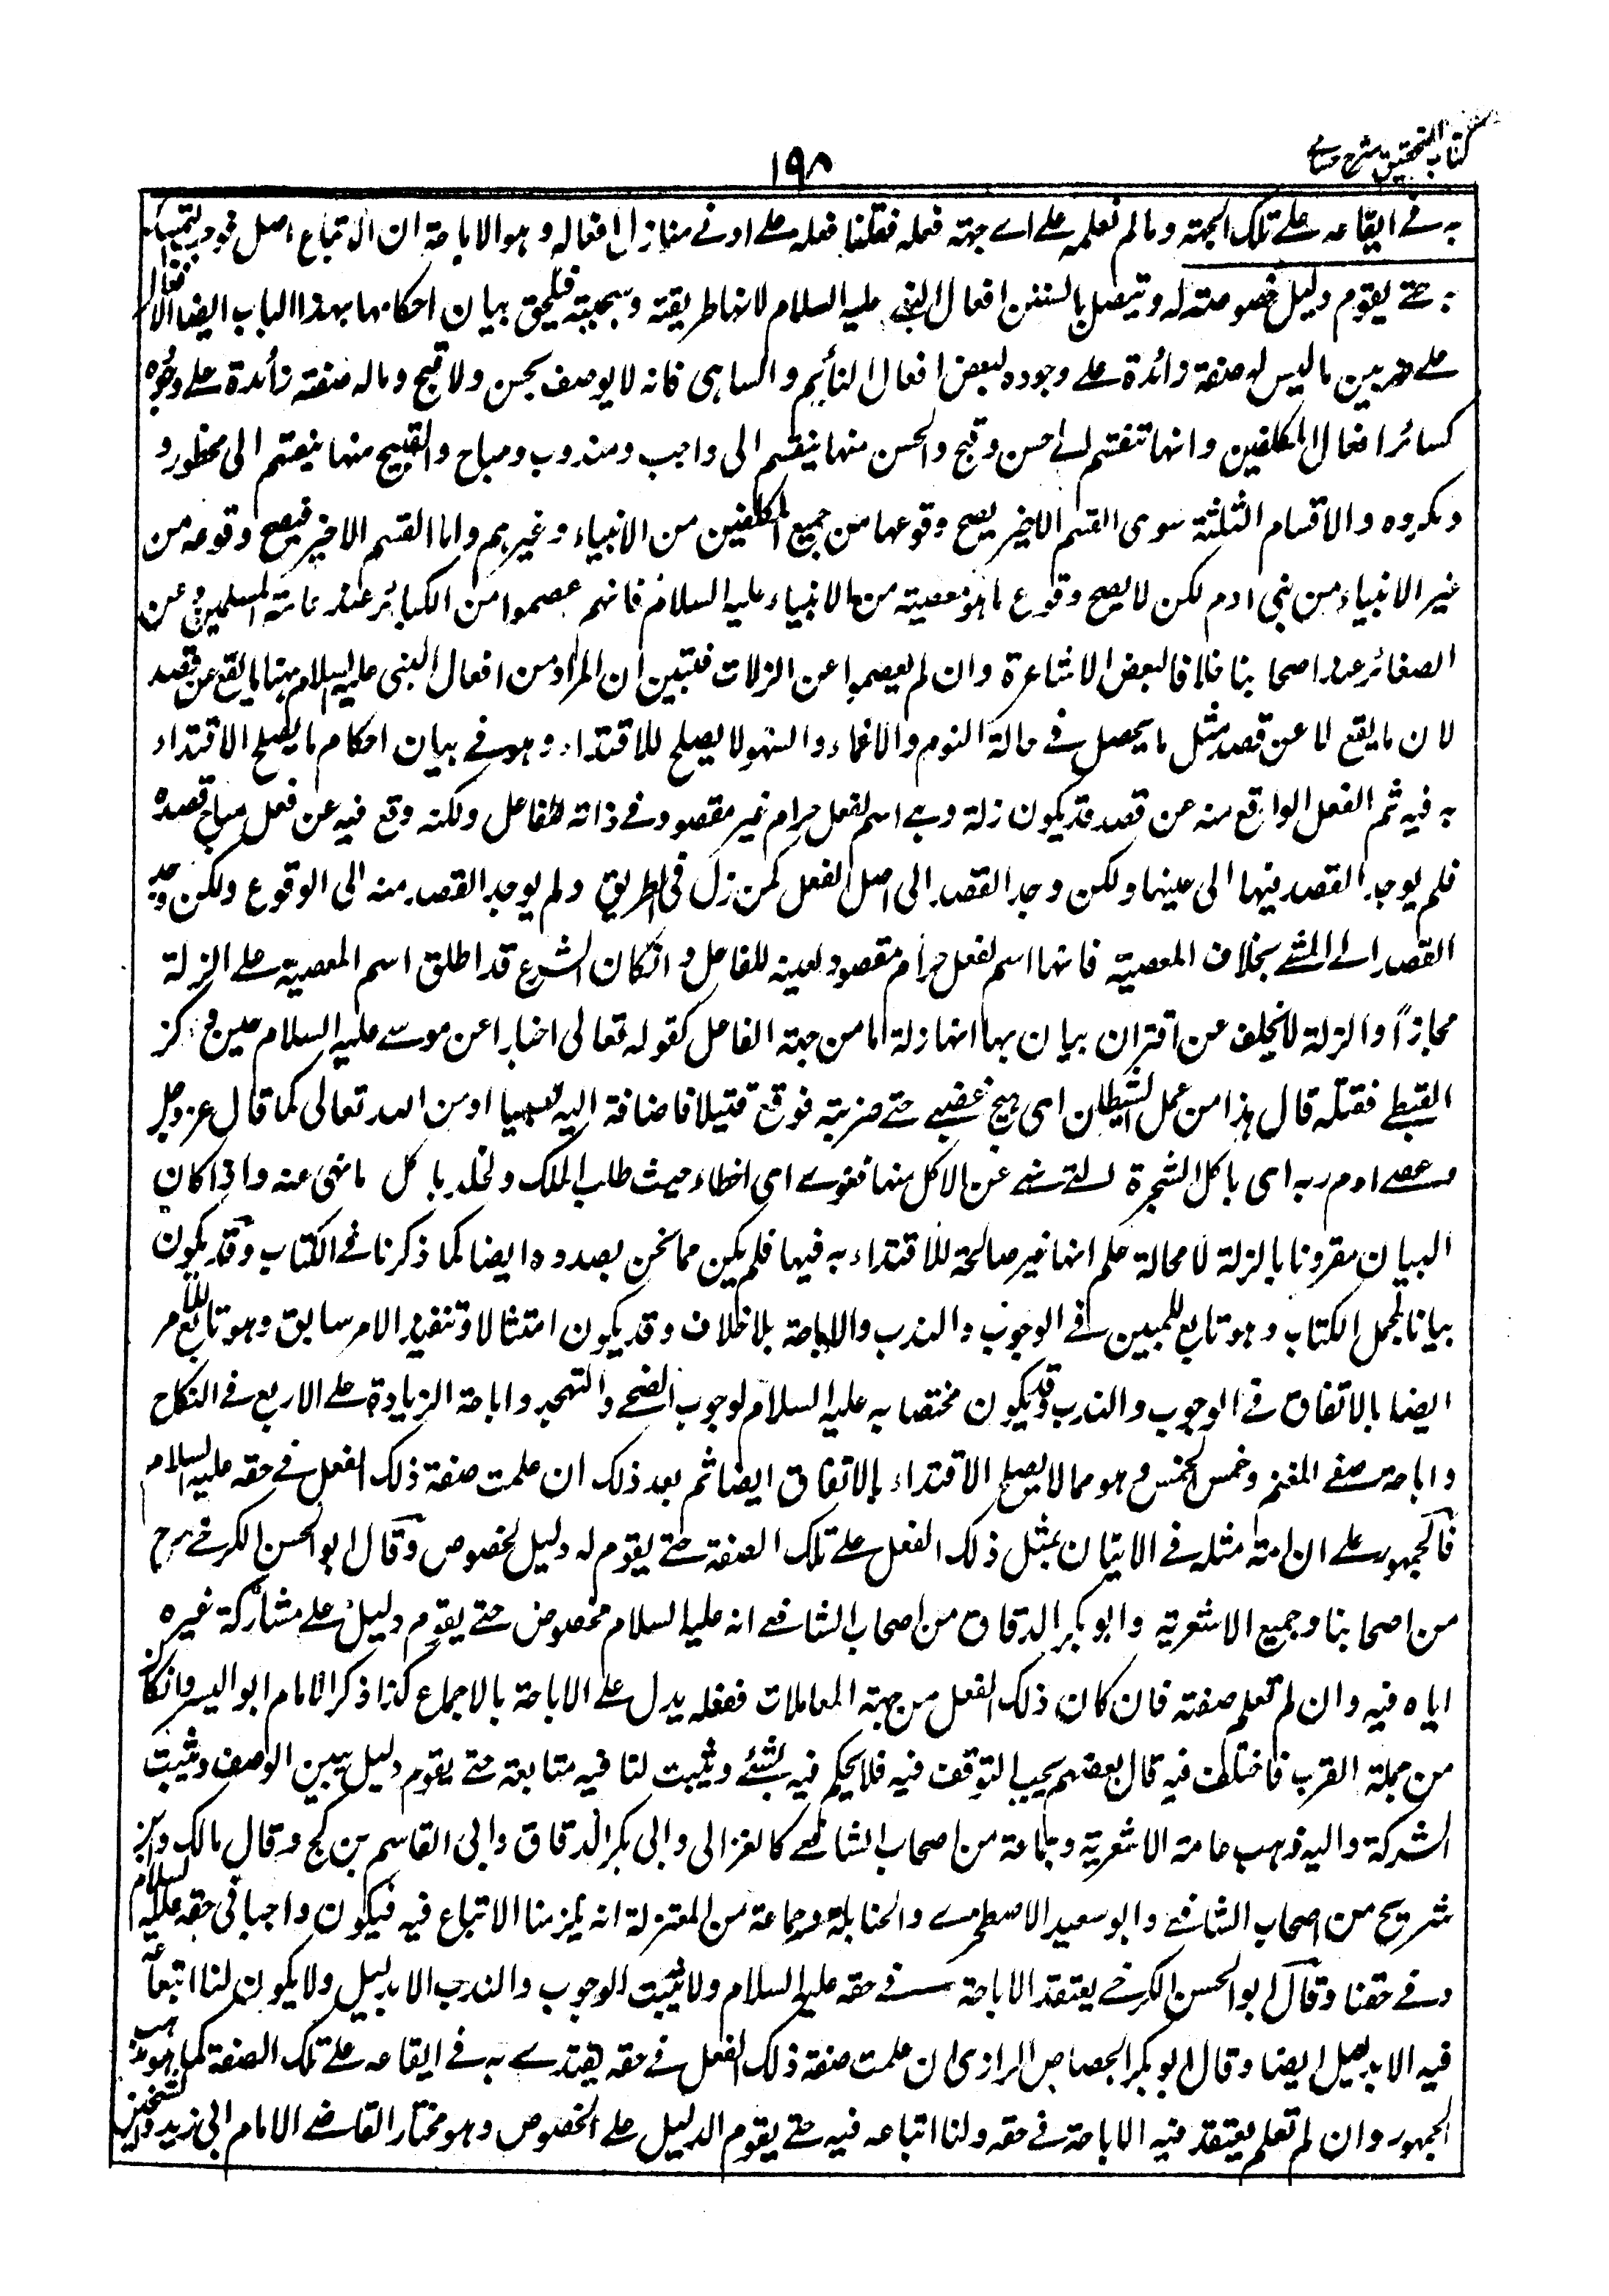 كتاب التحقيق شرح حسامي
١٩٨
به في ايقاعه على تلك الجهة وما لم نعلمه على اي جهة فعله فقلنا فعله على ادنى منازل افعاله وهو الاباحة لان الاتباع اصل فوجب التمسك
به حتى يقوم دليل خصوصيته له وتيصل بالسنن افعال النبي عليه السلام لانها طريقته وسجيته فيلحق بيان احكامها بهذا الباب ايضا الافعال
على ضربين ما ليس له صفة زائدة على وجوده كبعض افعال النائم والساهي فانه لا يوصف بحسن ولا قبح وما له صفة زائدة على وجوده
كسائر افعال المكلفين وانها تنقسم الى حسن وقبح والحسن منها ينقسم الى واجب ومندوب ومباح والقبيح منها ينقسم الى محظور و
ومكروه والاقسام الثلثة سوى القسم الاخير يصح وقوعها من جميع المكلفين من الانبياء وغيرهم واما القسم الاخير فيصح وقوعه من
غير الانبياء من بني ادم لكن لا يصح وقوع ما هو معصية من الانبياء عليه السلام فانهم عصموا من الكبائر عند عامة المسلمين وعن
الصغائر عند اصحابنا خلافا لبعض الاشاعرة وان لم يعصموا عن الزلات فتبين ان المراد من افعال النبي عليه السلام هنا ما يقع عن قصد
لان ما يقع لا عن قصد مثل ما يحصل في حالة النوم والاغماء والسهو لا يصلح للاقتداء وهو في بيان احكام ما يصلح الاقتداء
به فيه ثم الفعل الواقع منه عن قصد قد يكون زلة وهي اسم لفعل حرام غير مقصود في ذاته للفاعل ولكنه وقع فيه عن فعل مباح قصده
فلم يوجد القصد فيها الى عينها ولكن وجد القصد الى اصل الفعل كمن زل في الطريق ولم يوجد القصد منه الى الوقوع ولكن وجد
القصد الى المشي بخلاف المعصية فانها اسم لفعل حرام مقصود لعينه للفاعل وان كان الشرع قد اطلق اسم المعصية على الزلة
مجازاً والزلة لا تخلف عن اقتران بيان بها انها زلة اما من جهة الفاعل كقوله تعالى اخبارا عن موسى عليه السلام حين وكز
القبطي فقتله قال هذا من عمل الشيطان اي هيج غضبي حتى ضربته فوقع قتيلا فاضافة اليه تسببيا او من الله تعالى كما قال عز وجل
وعصى ادم ربه اي باكل الشجرة التي نهي عن الاكل منها فغوى اي اخطاء حيث طلب الملك والخلد باكل ما نهى عنه واذا كان
البيان مقرونا بالزلة لا محالة علم انها غير صالحة للاقتداء به فيها فلم يكن مما نحن بصدده ايضا كما ذكرنا في الكتاب وقد يكون
بيانا لمجمل الكتاب وهو تابع للمبين في الوجوب والندب والاباحة بلا خلاف وقد يكون امتثالا وتنفيذ الامر سابق وهو تابع للامر
ايضا بالاتفاق في الوجوب والندب وقد يكون مختصا به عليه السلام لوجوب الضحى والتهجد واباحة الزيادة على الاربع في النكاح
واباحة صفي المغنم وخمس الخمس وهو مما لا يصلح الاقتداء بالاتفاق ايضا ثم بعد ذلك ان علمت صفة ذلك الفعل في حقه عليه السلام
فالجمهور على ان امته مثله في الاتيان بمثل ذلك الفعل على تلك الصفة حتى يقوم له دليل الخصوص وقال ابو الحسن الكرخي رح
من اصحابنا وجميع الاشعرية وابو بكر الدقاق من اصحاب الشافعي انه عليه السلام مخصوص حتى يقوم دليل على مشاركة غيره
اياه فيه وان لم تعلم صفته فان كان ذلك الفعل من جهة المعاملات ففعله يدل على الاباحة بالاجماع كذا ذكر الامام ابو اليسر وان كان
من جملة القرب فاختلف فيه قال بعضهم يجب التوقف فيه فلا يحكم فيه بشئ ويثبت لنا فيه متابعة حتى يقوم دليل يبين الوصف ويثبت
الشركة واليه ذهب عامة الاشعرية وجماعة من اصحاب الشافعي كالغزالي وابي بكر الدقاق وابي القاسم بن كج وقال مالك وابن
شريح من اصحاب الشافعي وابو سعيد الاصطخري والحنابلة وجماعة من المعتزلة انه يلزمنا الاتباع فيه فيكون واجبا في حقه عليه السلام
وفي حقنا وقال ابو الحسن الكرخي يعتقد الاباحة في حقه عليه السلام ولا يثبت الوجوب والندب الا بدليل ولا يكون لنا اتباعه
فيه الا بدليل ايضا وقال ابو بكر الجصاص الرازي ان علمت صفة ذلك الفعل في حقه يقتدي به في ايقاعه على تلك الصفة كما هو مذهب
الجمهور وان لم تعلم يعتقد فيه الاباحة في حقه ولنا اتباعه فيه حتى يقوم الدليل على الخصوص وهو مختار القاضي الامام ابي زيد والشيخين